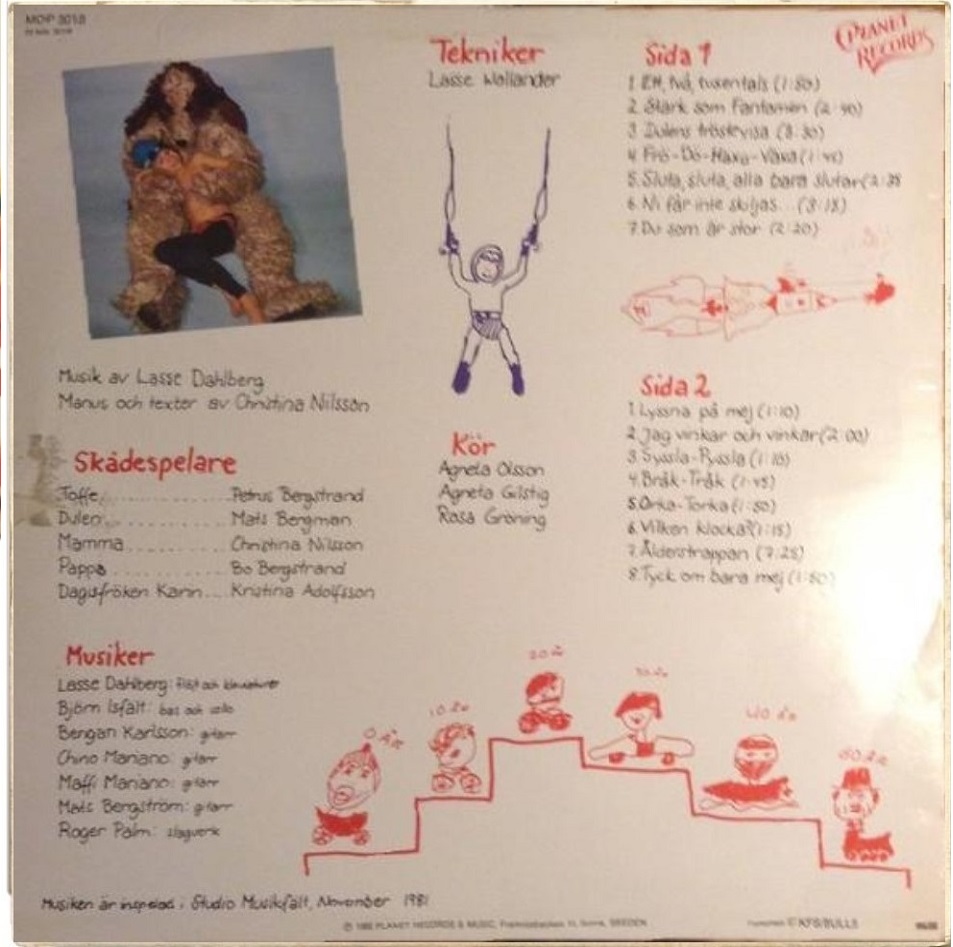 MOP 3018
PLANET
RECORDS
Tekniker
Lasse Wallander
Sida 1
1. Ett, två, tusentals (1:50)
2. Stark som Fantomen (2:40)
3. Dulens tröstevisa (3:30)
4. Frö-Dö-Häxa-Växa (1:45)
5. Sluta, sluta, alla bara slutar (2:35
6. Ni får inte skiljas... (3:15)
7. Du som är stor (2:20)
Musik av Lasse Dahlberg
Manus och texter av Christina Nilsson
Skådespelare
Toffe ............ Petrus Bergstrand
Dulen ............ Mats Bergman
Mamma ............ Christina Nilsson
Pappa ............ Bo Bergstrand
Dagisfröken Karin .... Kristina Adolfsson
Kör
Agneta Olsson
Agneta Gilstig
Rosa Gröning
Sida 2
1. Lyssna på mej (1:10)
2. Jag vinkar och vinkar (2:00)
3. Syssla-Pyssla (1:10)
4. Bråk-Tråk (1:45)
5. Orka-Torka (1:50)
6. Vilken klocka? (1:15)
7. Ålderstrappan (7:25)
8. Tyck om bara mej (1:50)
Musiker
Lasse Dahlberg: flöjt och klaviaturer
Björn Isfält: bas och cello
Bengan Karlsson: gitarr
Chino Mariano: gitarr
Maffi Mariano: gitarr
Mats Bergström: gitarr
Roger Palm: slagverk
0 år
10 år
20 år
30 år
40 år
50 år
Musiken är inspelad i Studio Musikfält, November 1981
PLANET RECORDS & MUSIC, SWEDEN
© KFS/BULLS